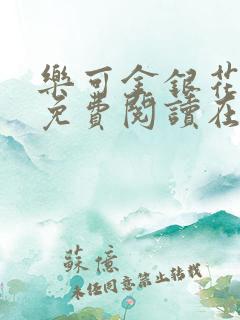 樂可金銀花
免費閱讀在
蘇億
未經同意禁止轉載